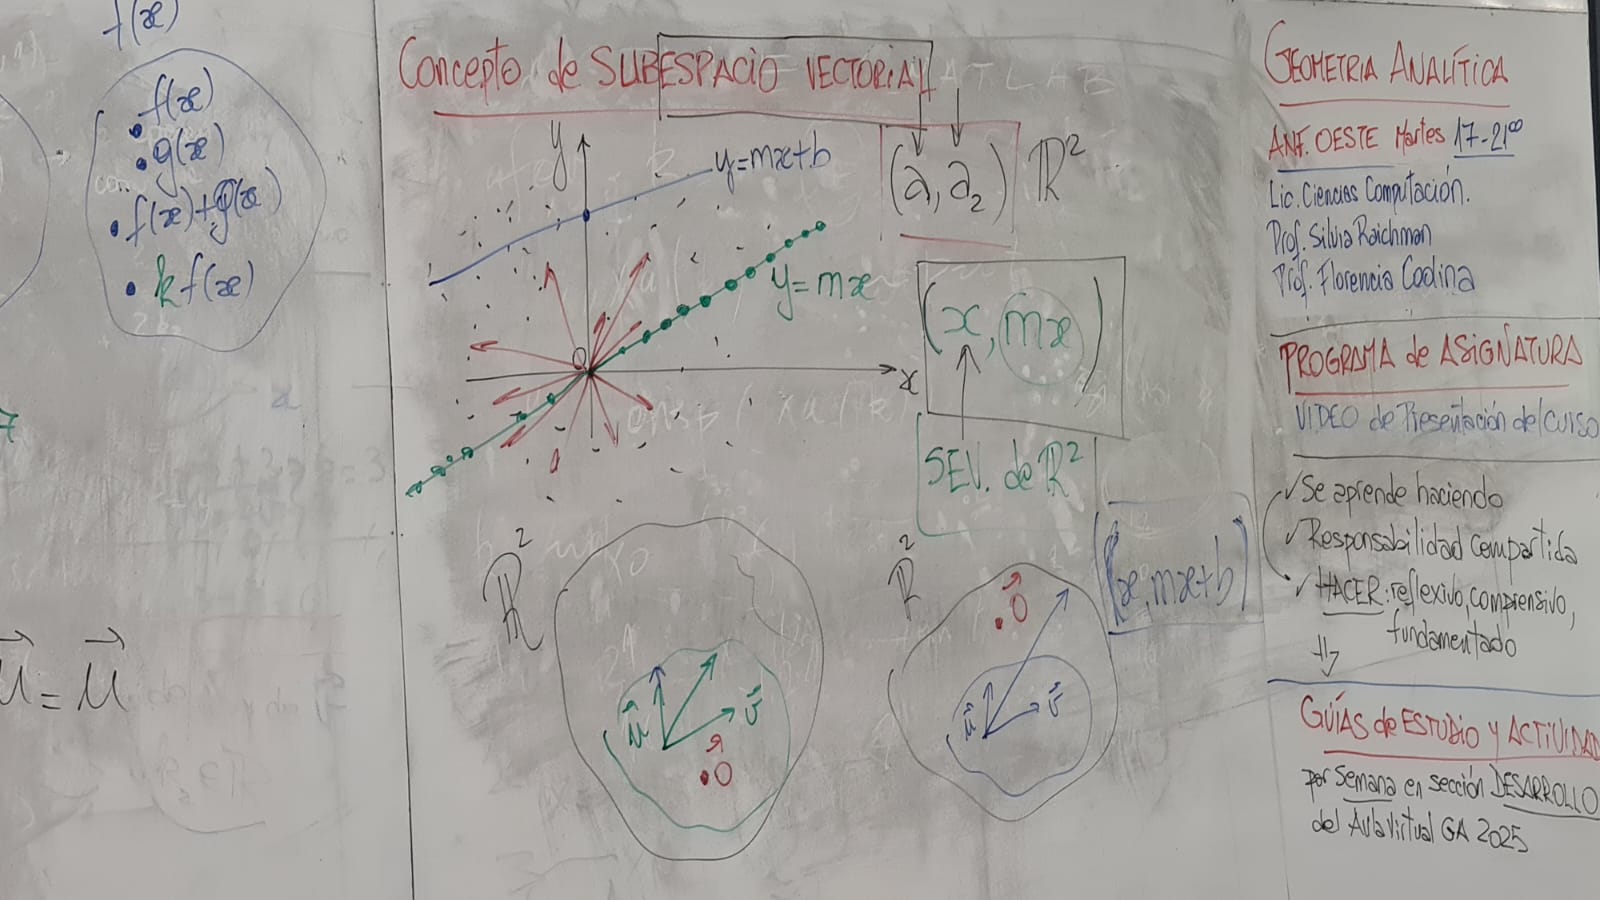 f(x)
f(x)
g(x)
f(x)+g(x)
k f(x)
u = u
Concepto de SUBESPACIO VECTORIAL
y
y=mx+b
(a, a₂) ℝ²
y=mx
(x, mx)
O
x
SEV. de ℝ²
ℝ²
u
v
O
ℝ²
O
u
v
(x, mx+b)
GEOMETRIA ANALÍTICA
ANF. OESTE Martes 17-21⁰⁰
Lic. Ciencias Computación.
Prof. Silvia Raichman
Prof. Florencia Codina
PROGRAMA de ASIGNATURA
VIDEO de Presentación del Curso
✓ Se aprende haciendo
✓ Responsabilidad compartida
✓ HACER: reflexivo, comprensivo,
fundamentado
GUÍAS de ESTUDIO y ACTIVIDAD
por Semana en sección DESARROLLO
del Aula Virtual GA 2025